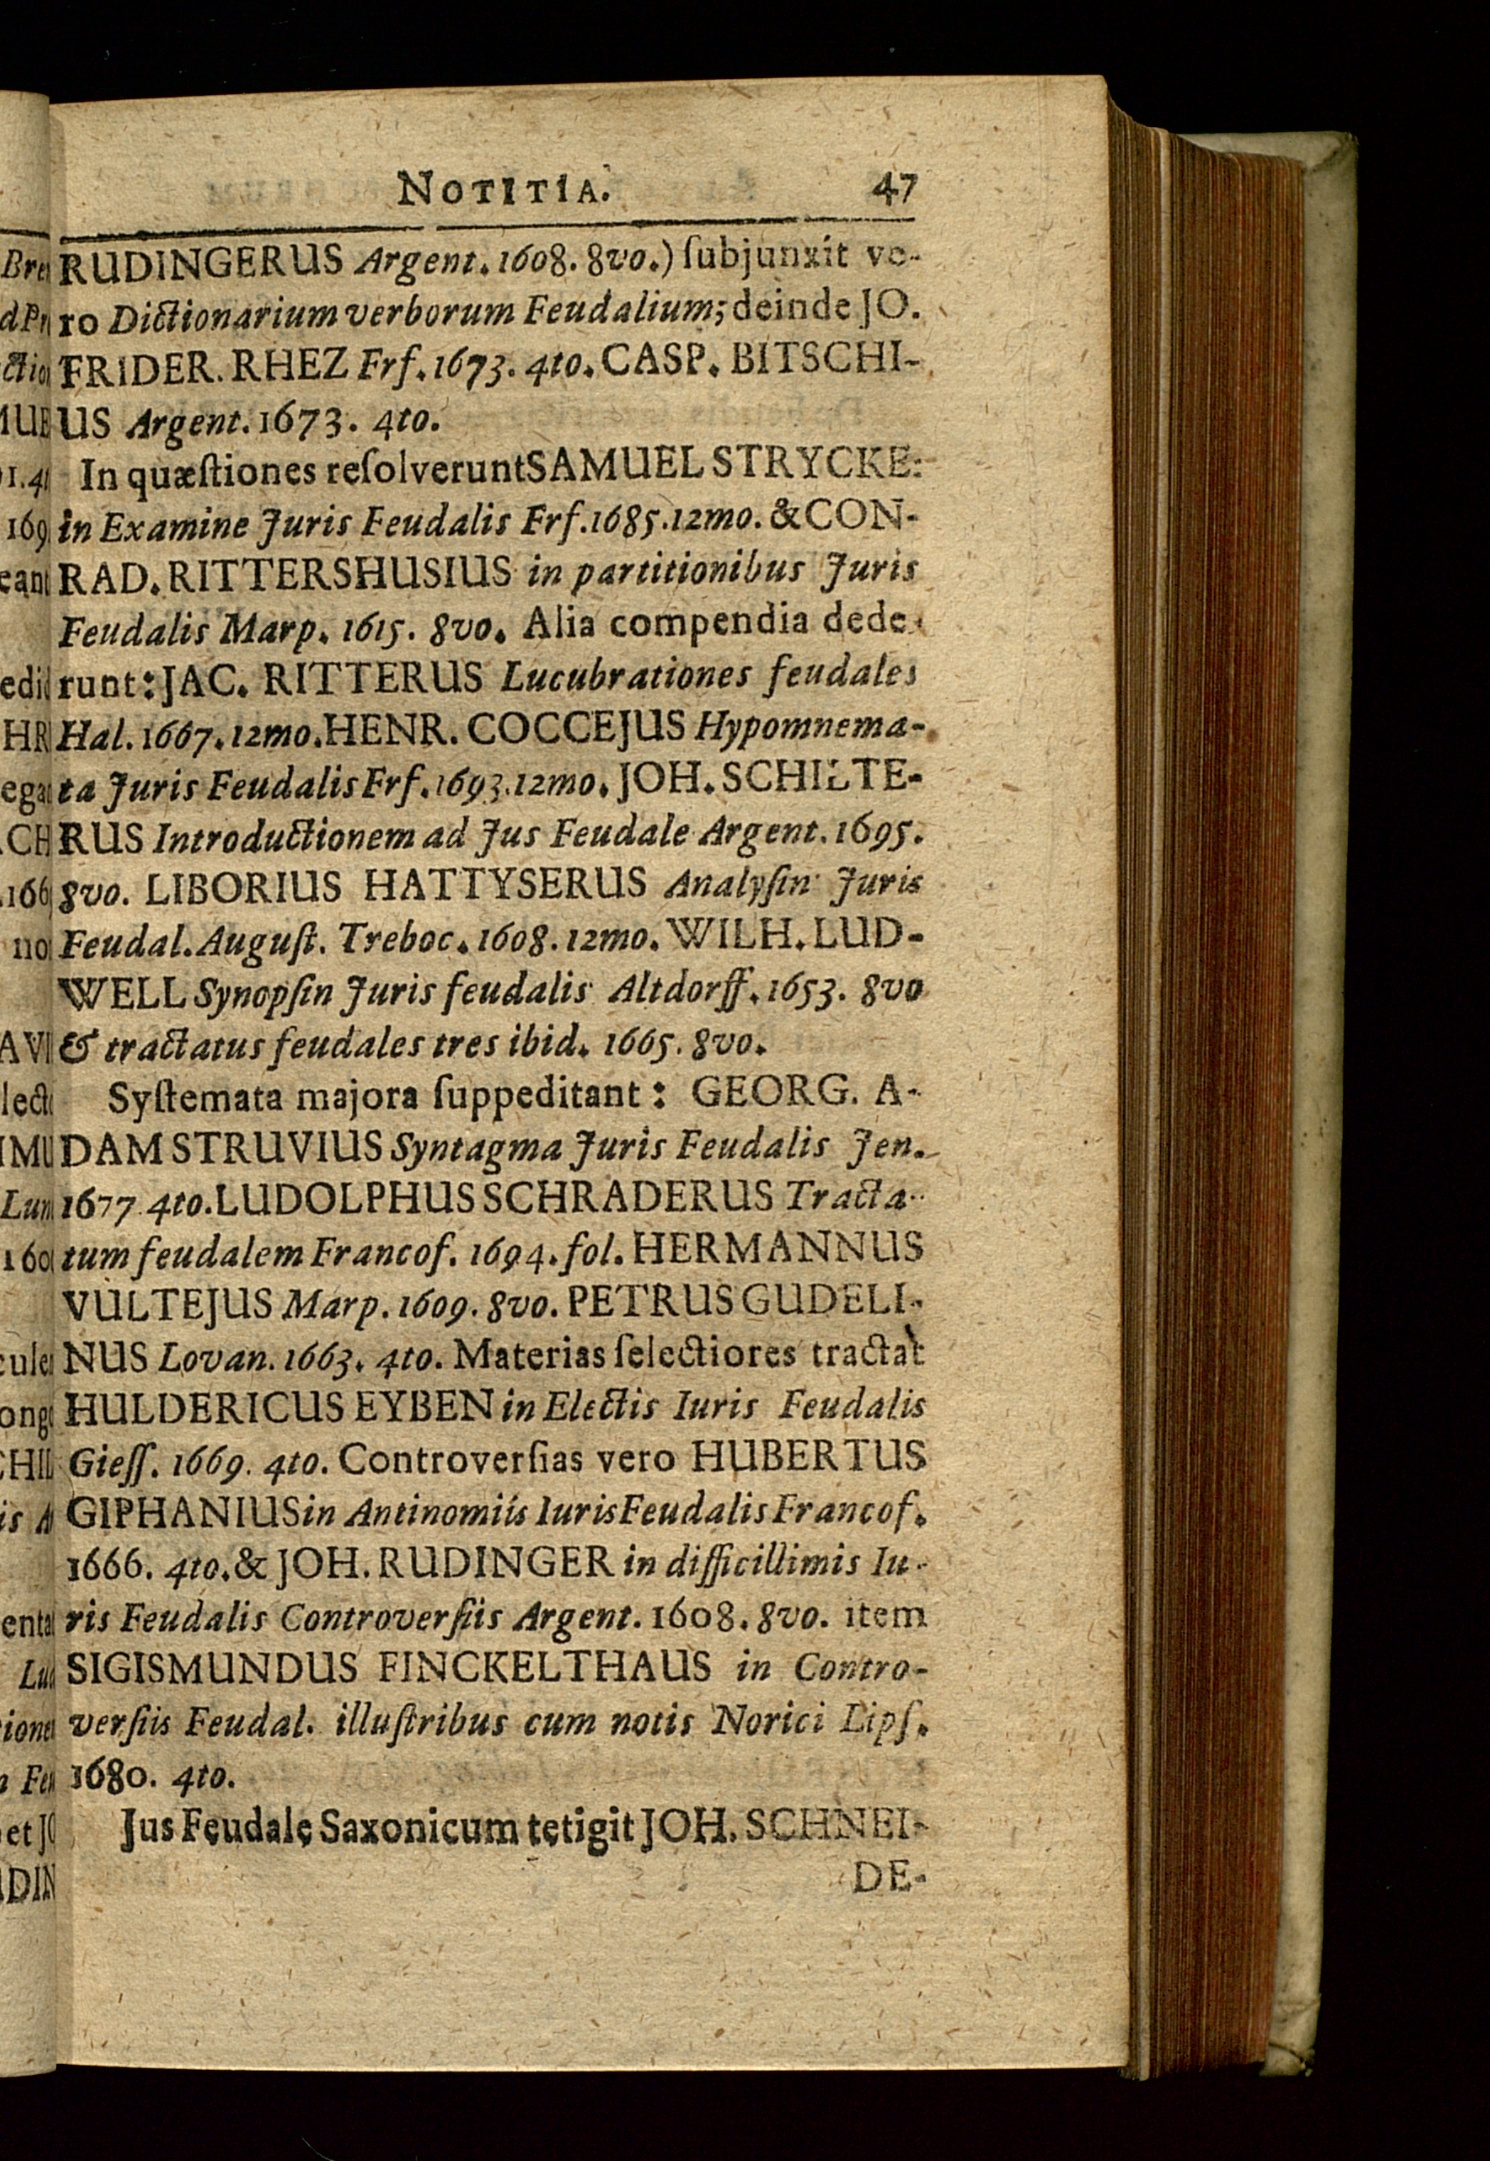 NOTITIA. 47
RUDINGERUS Argent. 1608. 8vo.) ſubjunxit ve-
ro Dictionarium verborum Feudalium; deinde JO.
FRIDER. RHEZ Frf. 1673. 4to. CASP. BITSCHI-
US Argent. 1673. 4to.
In quæſtiones reſolverunt SAMUEL STRYCKE:
in Examine Juris Feudalis Frf. 1685. 12mo. & CON-
RAD. RITTERSHUSIUS in partitionibus Juris
Feudalis Marp. 1615. 8vo. Alia compendia dede-
runt: JAC. RITTERUS Lucubrationes feudales
Hal. 1667. 12mo. HENR. COCCEJUS Hypomnema-
ta Juris Feudalis Frf. 1693. 12mo. JOH. SCHILTE-
RUS Introductionem ad Jus Feudale Argent. 1695.
8vo. LIBORIUS HATTYSERUS Analyſin Juris
Feudal. Auguſt. Treboc. 1608. 12mo. WILH. LUD-
WELL Synopſin Juris feudalis Altdorff. 1653. 8vo
& tractatus feudales tres ibid. 1665. 8vo.
Syſtemata majora ſuppeditant: GEORG. A-
DAM STRUVIUS Syntagma Juris Feudalis Jen.
1677. 4to. LUDOLPHUS SCHRADERUS Tracta-
tum feudalem Francof. 1694. fol. HERMANNUS
VULTEJUS Marp. 1609. 8vo. PETRUS GUDELI-
NUS Lovan. 1663. 4to. Materias ſelectiores tractat
HULDERICUS EYBEN in Electis Iuris Feudalis
Gieſſ. 1669. 4to. Controverſias vero HUBERTUS
GIPHANIUS in Antinomiis Iuris Feudalis Francof.
1666. 4to. & JOH. RUDINGER in difficillimis Iu-
ris Feudalis Controverſiis Argent. 1608. 8vo. item
SIGISMUNDUS FINCKELTHAUS in Contro-
verſiis Feudal. illuſtribus cum notis Norici Lipſ.
1680. 4to.
Jus Feudale Saxonicum tetigit JOH. SCHNEI-
DE-